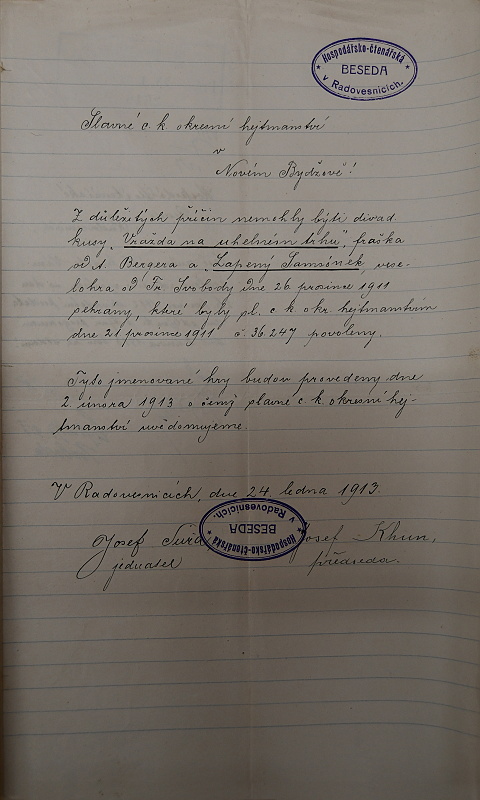 Hospodářsko-čtenářská
BESEDA
v Radovesnicích.
Slavné c. k. okresní hejtmanství
v
Novém Bydžově!
Z důležitých příčin nemohly býti divad.
kusy „Vražda na uhelném trhu", fraška
od A. Bergera a „Lapený Samsónek, vese-
lohra od Fr. Svobody dne 26. prosince 1911
sehrány, které byly sl. c. k. okr. hejtmanstvím
dne 21. prosince 1911 č. 36.247 povoleny.
Tyto jmenované hry budou provedeny dne
2. února 1913 o čemž slavné c. k. okresní hej-
tmanství uvědomujeme.
V Radovesnicích, dne 24. ledna 1913.
Josef
Josef Khun,
jednatel
předseda.
Hospodářsko-čtenářská
BESEDA
v Radovesnicích.